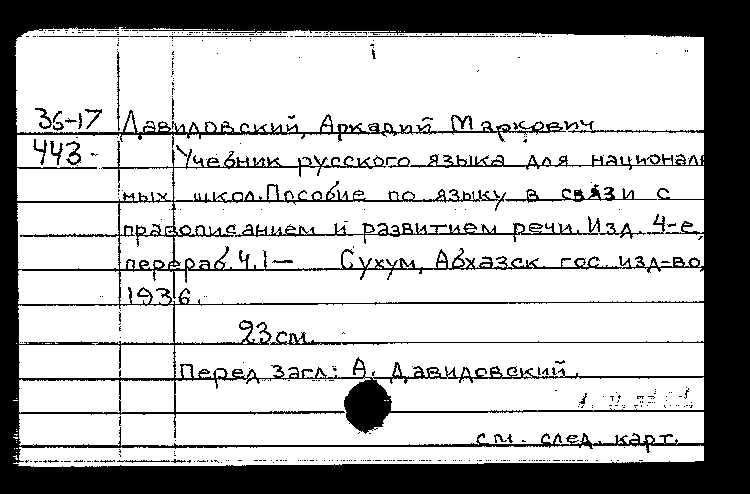 36-17 Давидовский, Аркадий Маркович
443- Учебник русского языка для националь
ных школ. Пособие по языку в связи с
правописанием и развитием речи. Изд. 4-е,
перераб. Ч. 1— Сухум, Абхазск. гос. изд-во,
1936.
23 см.
Перед загл: А. Давидовский.
см. след. карт.